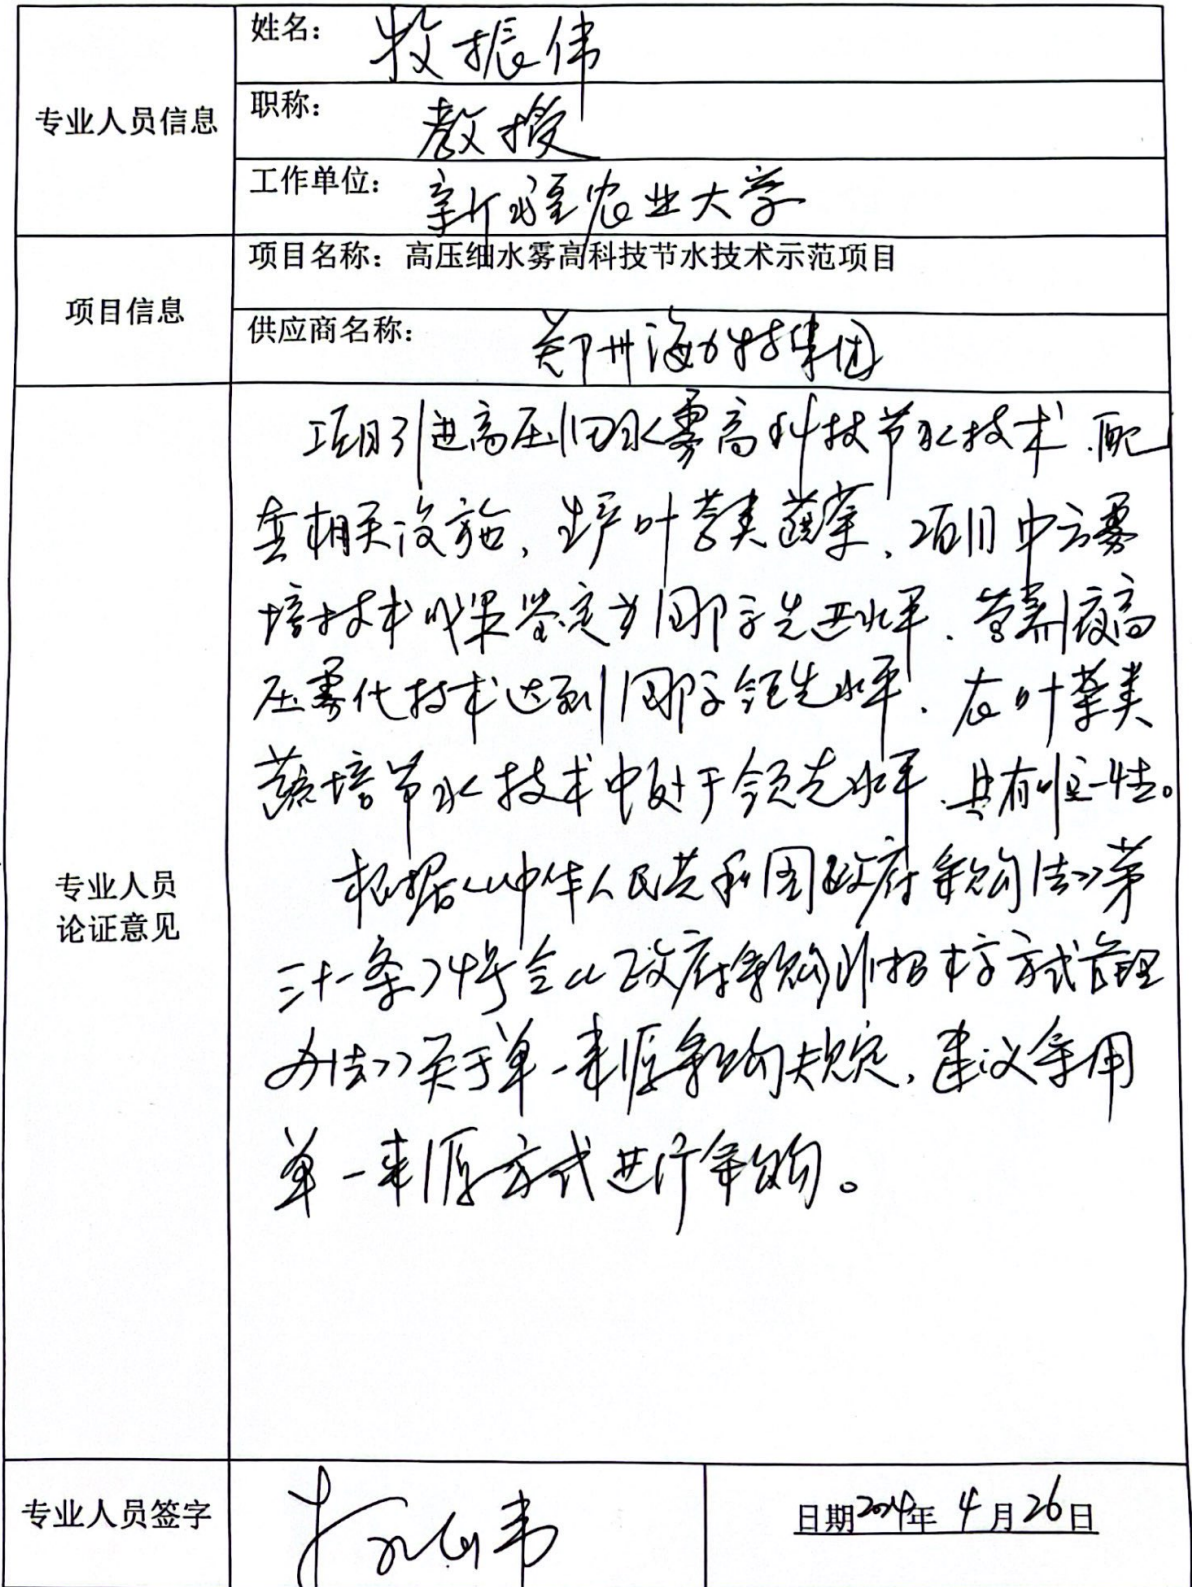 专业人员信息
姓名： 牧振伟
职称： 教授
工作单位： 新疆农业大学
项目信息
项目名称：高压细水雾高科技节水技术示范项目
供应商名称： 郑州海力特集团
专业人员
论证意见
项目引进高压细水雾高科技节水技术，配
套相关设施，生产叶菜类蔬菜，项目中云雾
培技术成果鉴定为国际先进水平，营养液高
压雾化技术达到国际领先水平，在叶菜类
蔬培节水技术中处于领先水平，具有唯一性。
根据《中华人民共和国政府采购法》第
三十一条74号令《政府采购非招标方式管理
办法》关于单一来源采购规定，建议采用
单一来源方式进行采购。
专业人员签字
日期2024年 4月26日